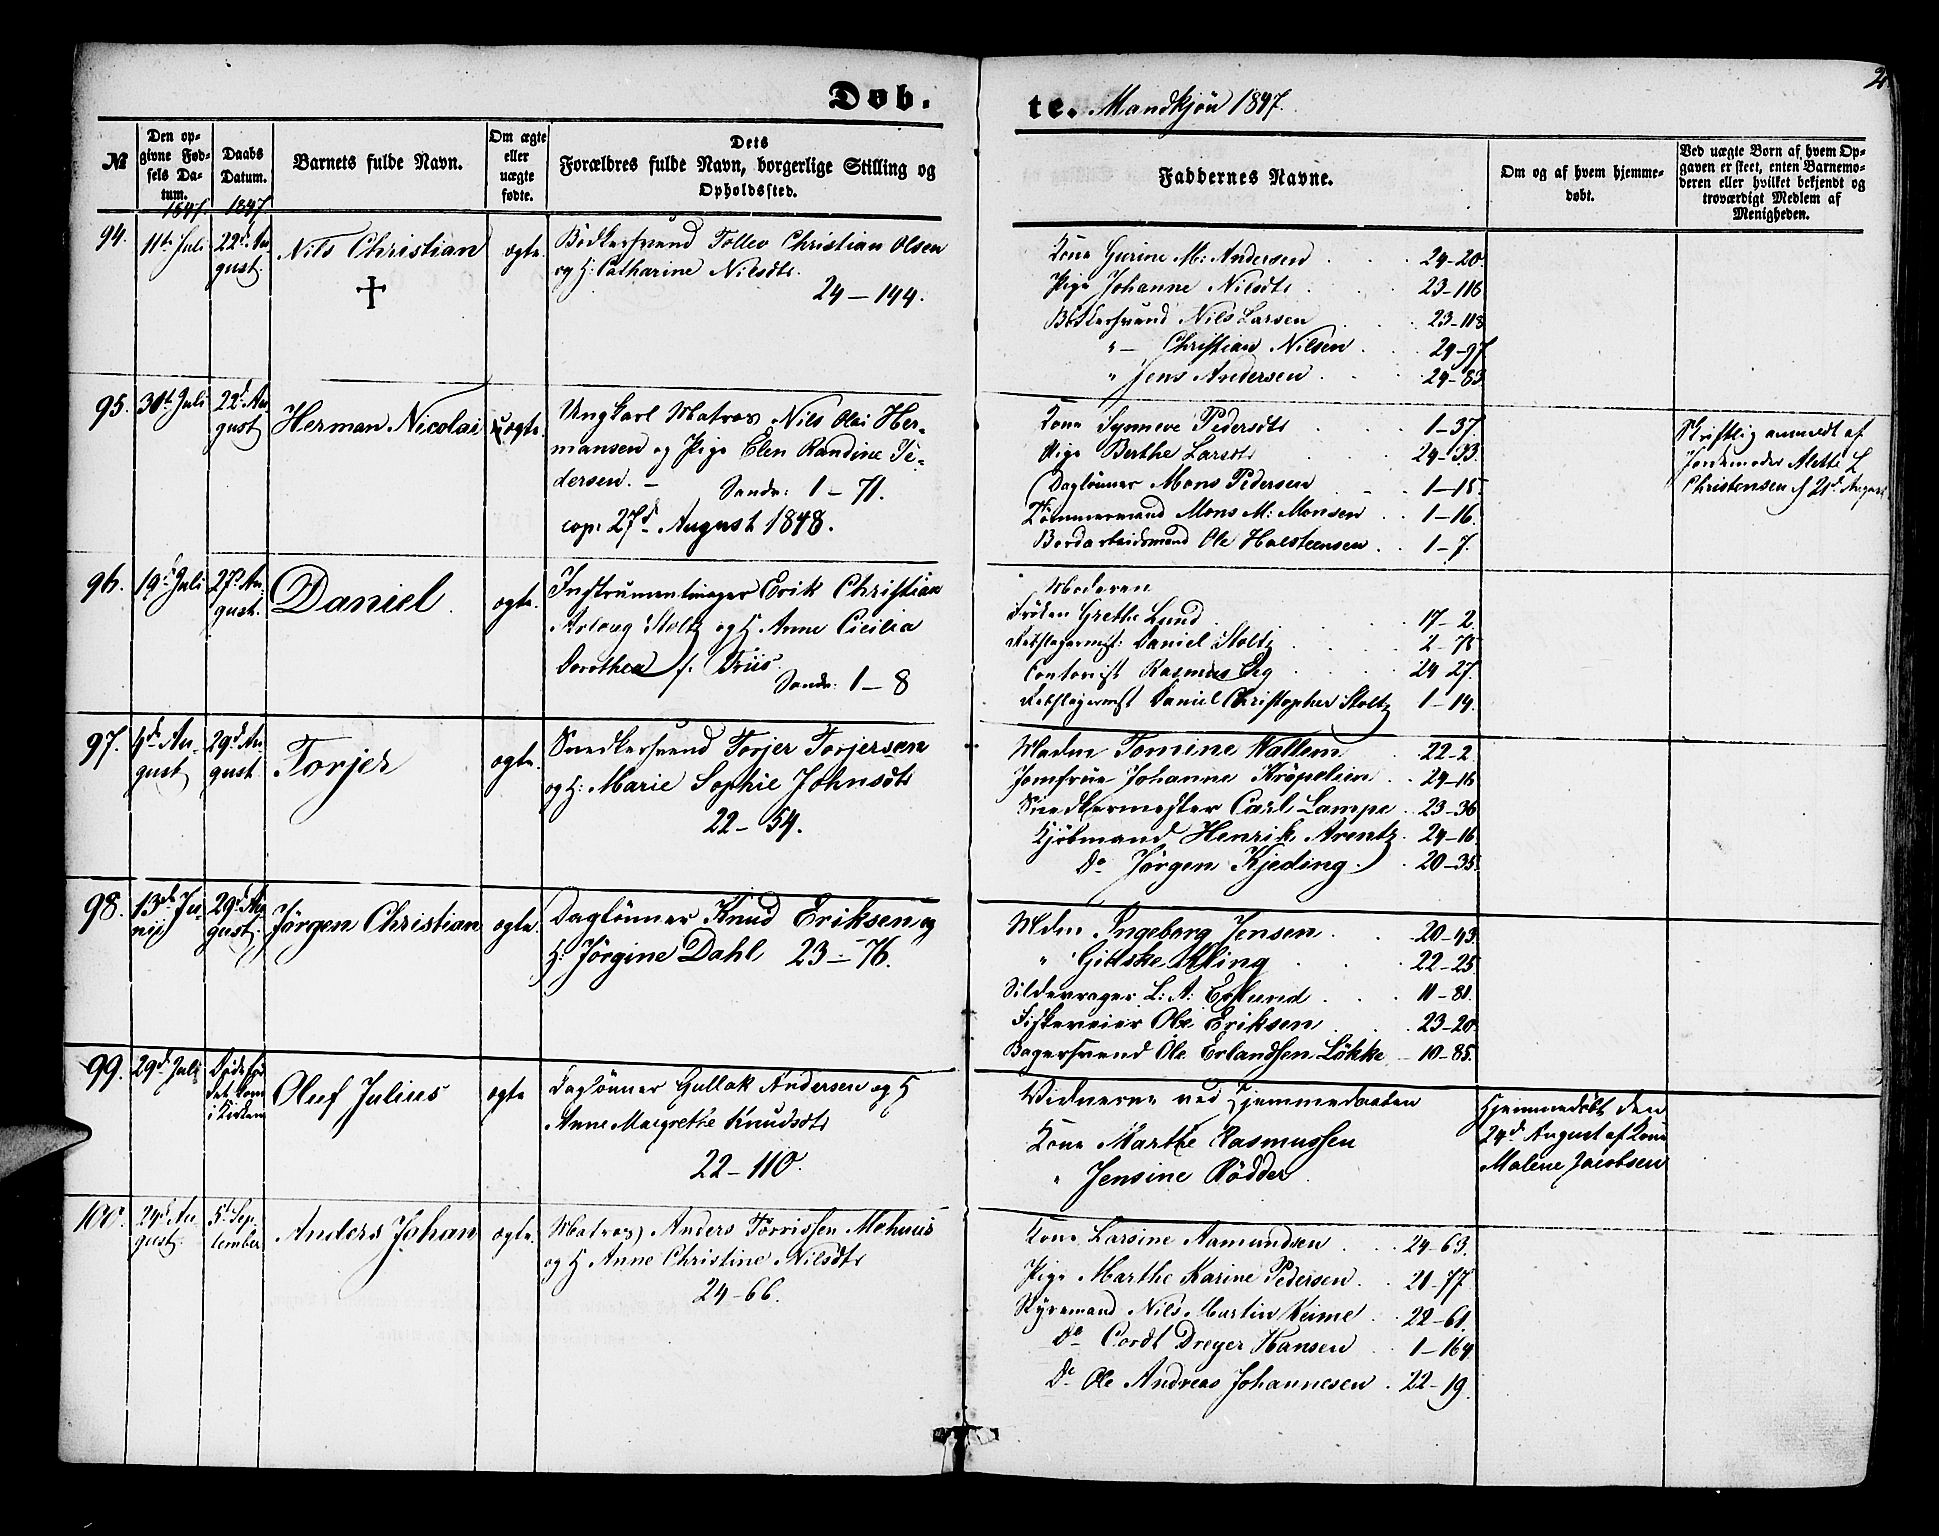 Døb.
te. Mandkjøn 1847.
2
No
Den op-
givne Fød-
sels Da-
tum.
Daabs
Datum.
Barnets fulde Navn.
Om ægte
eller
uægte
fødte.
Dets
Forældres fulde Navn, borgerlige Stilling og
Opholdssted.
Faddernes Navne.
Om og af hvem hjemme-
døbt.
Ved uægte Born af hvem Op-
gaven er skeet, enten Barnemo-
deren eller hvilket bekjendt og
troværdigt Medlem af
Menigheden.
1847.
1847
94.
11te Juli
22d Au
gust.
Nils Christian
ægte.
Bødkersvend Tollev Christian Olsen
og H: Catharine Nilsdtr.
24 — 144.
Kone Gurine M: Andersen 24-20.
Pige Johanne Nilsdtr 23-116
Bødkersvend Nils Larsen 23-118
" — Christian Nilsen 24-97
" Jens Andersen 24-83
95.
30te Juli
22d Au
gust
Herman Nicolai
uægte.
Ungkarl Matros Nils Olai Her-
mansen og Pige Elen Randine Pe-
dersen. — Sandv: 1 — 71.
cop: 27d August 1848.
Kone Synneve Pedersdtr 1-37.
Pige Berthe Larsdtr 24-33.
Daglønner Mons Pedersen 1-15.
Tømmermand Mons M: Monsen 1-16.
Bordarbeidsmand Ole Halsteensen 1-7.
Skriftlig anmeldt af
Jordemoder Mette L
Christensen d 21d August
96.
19de Juli
27de Au
gust.
Daniel
ægte.
Instrumentmager Erik Christian
Stoltz og H. Anne Cicilia
Dorothea f. Friis.
Sandv: 1 — 8
Moderen
Frøken Grethe Lund 17-2.
Rebslagermst: Daniel Stoltz 2-75
Contorist Rasmus Eeg 24 27.
Rebslagermst Daniel Christopher Stoltz 1-14.
97.
4de Au-
gust
29d Au
gust
Torjer
ægte.
Snedkersvend Torjer Torjersen
og H: Marie Sophie Johnsdtr
22 — 54.
Madme Tomine Wallem 22-2.
Jomfrue Johanne Krøpelien 24-16
Snedkermester Carl Lampe 23-36
Kjøbmand Henrik Arentz 24-16.
Do Jørgen Kjeding 20-35.
98.
13de Ju-
nij
29d Au
gust.
Jørgen Christian
ægte.
Daglønner Knud Eriksen og
H: Jørgine Dahl 23 — 76.
Mdme Ingeborg Jensen 20-43.
" Gidske Uling 22-25
Sildevrager L: A: Erlund 11-81.
Fiskeveier Ole Eriksen 23-20.
Bagersvend Ole Erlandsen Løkke 10-85.
99.
29d Juli
Døde før
det kom
i Kirken
Oluf Julius
ægte
Daglønner Gullak Andersen og H
Anne Margrethe Knudsdtr
22-110.
Vidnerne ved Hjemmedaaben
Kone Marthe Rasmussen
" Jensine Rødder
Hjemmedøbt den
24d August af Kone
Malene Jacobsen
100.
24d Au-
gust.
5t Sep-
tember
Anders Johan
ægte.
Matros Anders Torrissen Mehuus
og H Anne Christine Nilsdtr
24-66.
Kone Larsine Aamundsen 24-63.
Pige Marthe Karine Pedersen 21-77
Styrmand Nils Martin Heime 22-61.
Do Cordt Dreyer Hansen 1-164
Do Ole Andreas Johannesen 22-19.